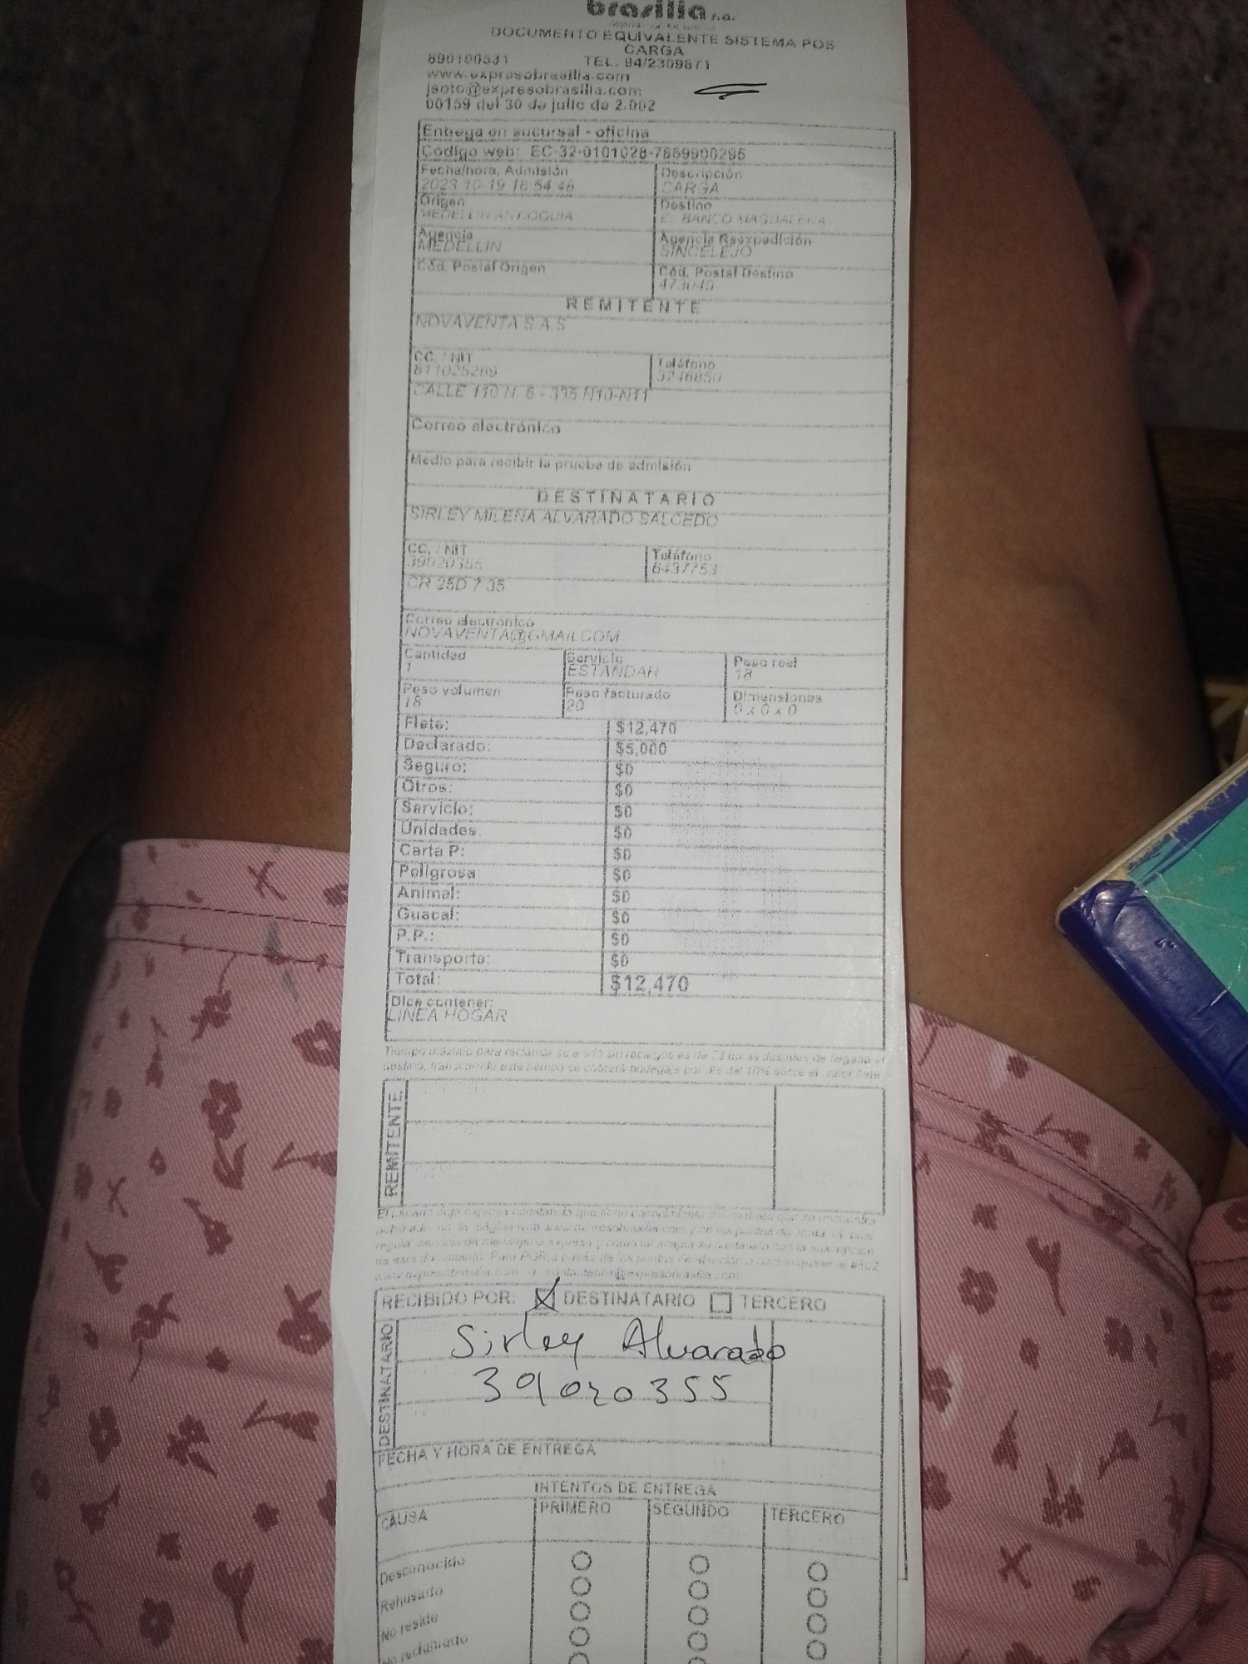 brasilia s.a.
DOCUMENTO EQUIVALENTE SISTEMA POS
CARGA
890100531 TEL. 94/2309871
www.expresobrasilia.com
jsoto@expresobrasilia.com
00159 del 30 de julio de 2.002
Entrega en sucursal - oficina
Código web: EC-32-0101028-7669900295
Fecha/hora, Admisión Descripción
2023-10-19 16:54:46 CARGA
Origen Destino
MEDELLIN ANTIOQUIA EL BANCO MAGDALENA
Agencia Agencia Reexpedición
MEDELLIN SINCELEJO
Cód. Postal Origen Cód. Postal Destino
473040
REMITENTE
NOVAVENTA S A S
CC. / NIT Teléfono
811025289 3246850
CALLE 110 N 5 - 335 N10-N11
Correo electrónico
Medio para recibir la prueba de admisión
DESTINATARIO
SIRLEY MILENA ALVARADO SALCEDO
CC. / NIT Teléfono
39020355 6437753
CR 25D 7 35
Correo electrónico
NOVAVENTA@GMAIL.COM
Cantidad Servicio Peso real
1 ESTANDAR 18
Peso volumen Peso facturado Dimensiones
18 20 0 x 0 x 0
Flete: $12,470
Declarado: $5,000
Seguro: $0
Otros: $0
Servicio: $0
Unidades $0
Carta P: $0
Peligrosa $0
Animal: $0
Guacal: $0
P.P.: $0
Transporte: $0
Total: $12,470
Dice contener:
LINEA HOGAR
Tiempo máximo para reclamar su envío sin recargos es de 72 horas después de llegado al
destino, transcurrido este tiempo se cobrará bodegaje por día del 10% sobre el valor flete
REMITENTE
RECIBIDO POR: DESTINATARIO TERCERO
DESTINATARIO
Sirley Alvarado
39020355
FECHA Y HORA DE ENTREGA
INTENTOS DE ENTREGA
CAUSA PRIMERO SEGUNDO TERCERO
Desconocido
Rehusado
No reside
No reclamado